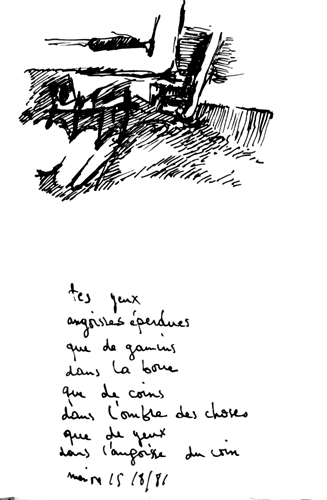 tes yeux
angoisses éperdues
que de gamins
dans la boue
que de coins
dans l'ombre des choses
que de yeux
dans l'angoisse du coin
15/8/81